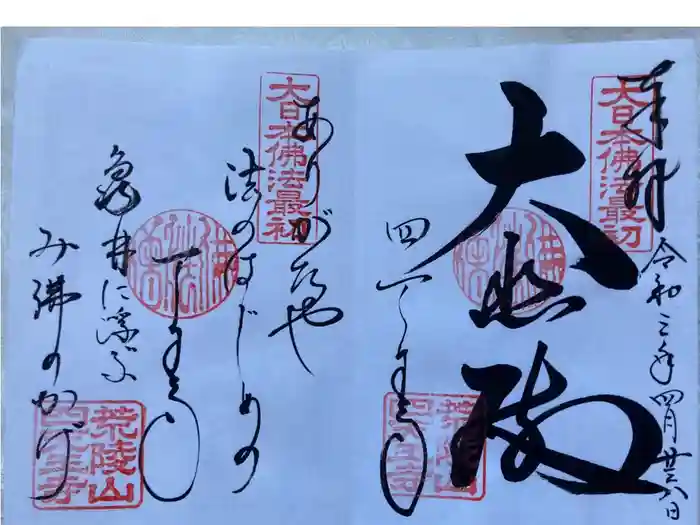 奉拝
大日本佛法最初
令和三年四月廿六日
大悲殿
四天王寺
荒陵山
四天王寺
大日本佛法最初
ありがたや
法のはじめの
四天王寺
亀井に浮ぶ
み佛のかげ
荒陵山
四天王寺